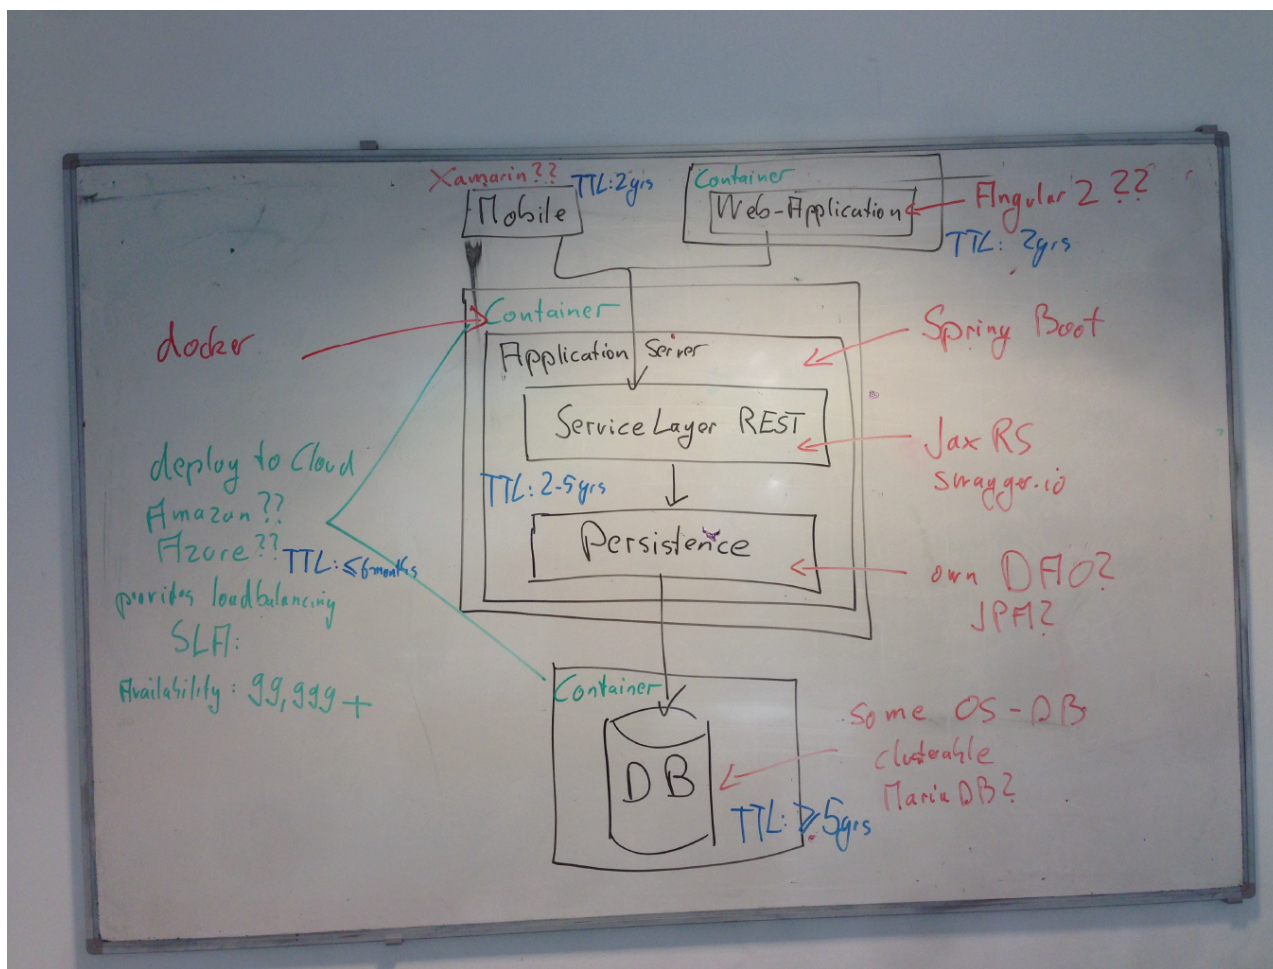 Xamarin??
TTL: 2yrs
Mobile
Container
Web-Application
Angular 2 ??
TTL: 2yrs
docker
Container
Application Server
Spring Boot
Service Layer REST
Jax RS
swagger.io
TTL: 2-5yrs
Persistence
own DAO?
JPA?
deploy to Cloud
Amazon??
Azure??
TTL: ≤6months
provides loadbalancing
SLA:
Availability: 99,999+
Container
DB
TTL: ≥5yrs
Some OS-DB
clusterable
MariaDB?